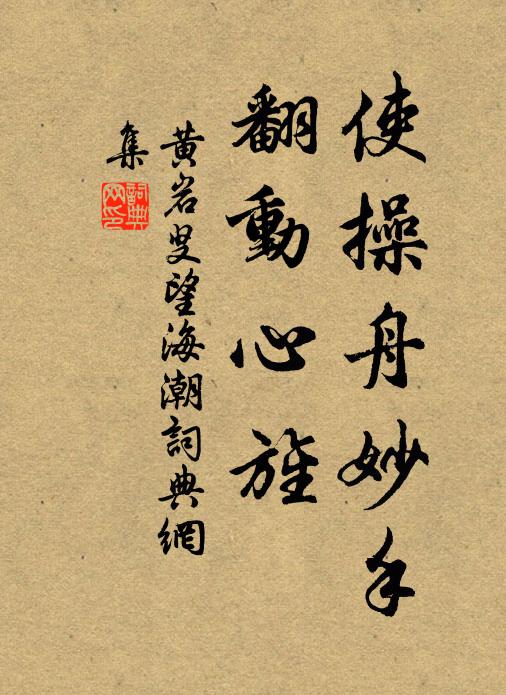 使操舟妙手
翻動心旌
黃岩叟望海潮詞典網
集
詞典網印